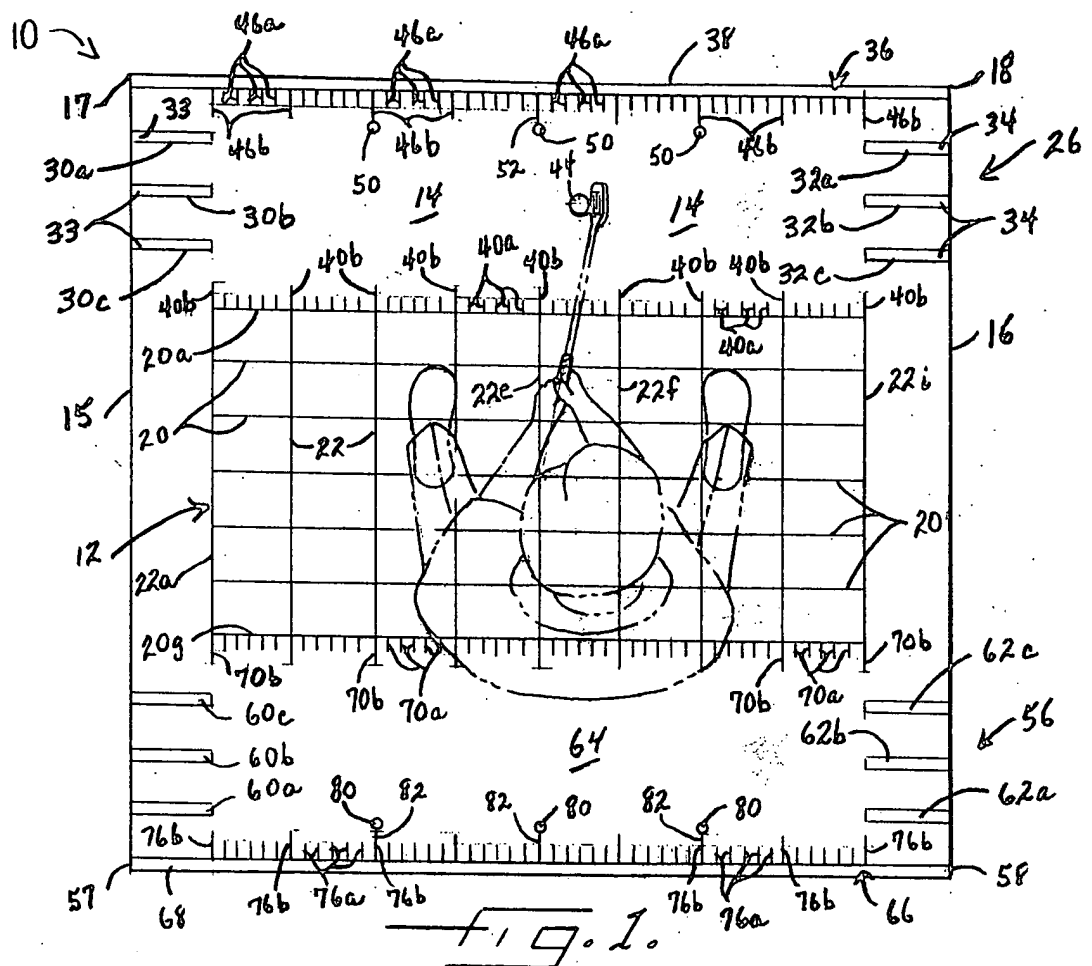 10
46a
46a
46a
38
36
17
18
33
46b
46b
46b
46b
34
30a
50
52
50
50
32a
26
44
33
30b
14
14
32b
34
30c
40b
40b
40a
40b
40b
40b
32c
40b
40b
20a
40a
16
22e
22f
22i
15
20
22
12
20
22a
20g
70b
70b
70a
70b
70a
70b
62c
60c
64
56
60b
62b
60a
80
82
82
80
82
80
62a
76b
76b
76a
76b
76b
76a
76b
76b
57
68
66
58
Fig. 1.